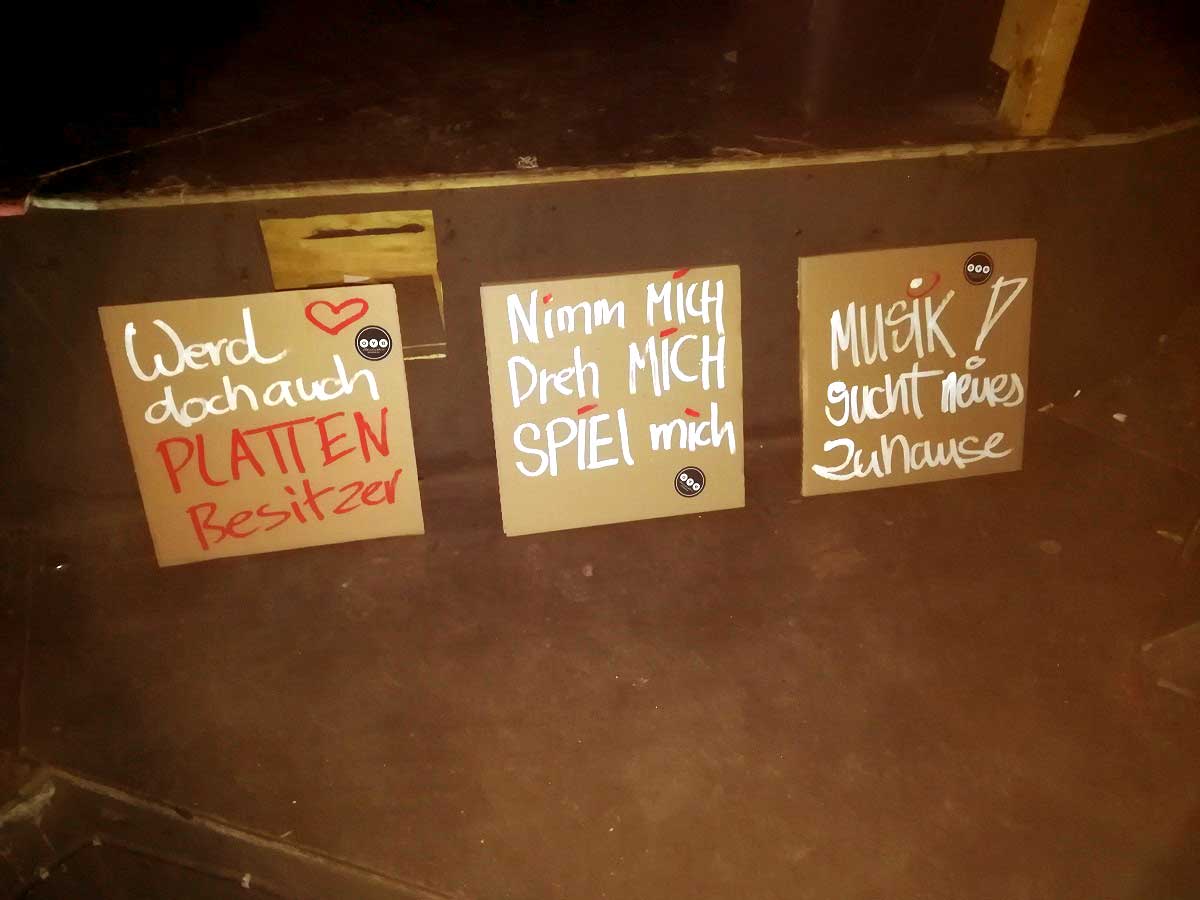 Werd
doch auch
PLATTEN
Besitzer
Nimm MiCH
Dreh MiCH
SPiEl mich
MUSiK !
sucht neues
zuhause